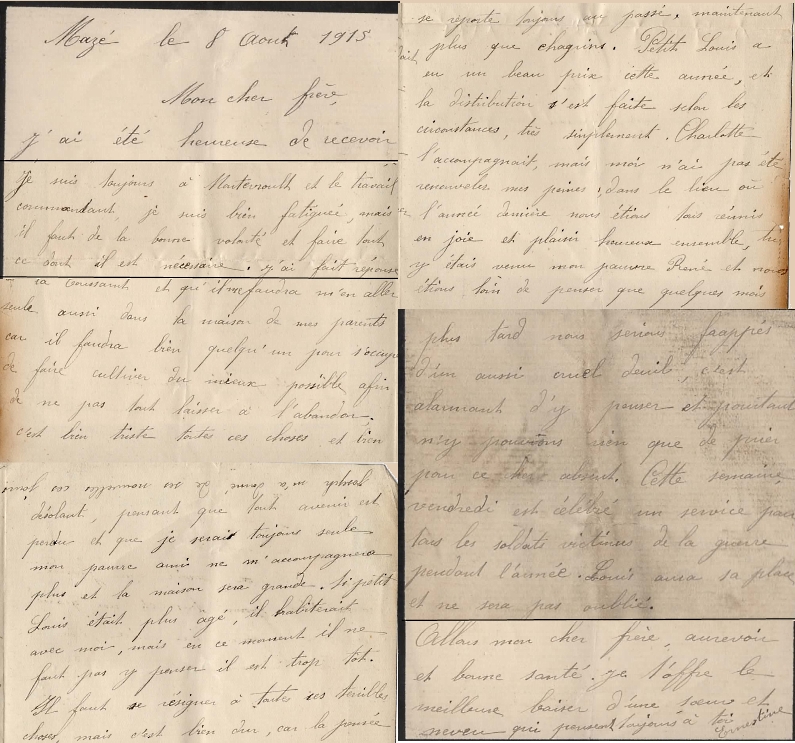 Mazé le 8 Aout 1915
Mon cher frère,
J'ai été heureuse de recevoir
Je suis toujours à et le travail
commandant, je suis bien fatiguée, mais
il faut de la bonne volonté et faire tout
ce dont il est nécessaire. J'ai fait réponse
la Toussaint et qu'il me faudra m'en aller
seule aussi dans la maison de mes parents
car il faudra bien quelqu'un pour s'occuper
de faire cultiver du mieux possible afin
de ne pas tout laisser à l'abandon.
c'est bien triste toutes ces choses et bien
Joseph m'a donné de ses nouvelles ces jours
désolant, pensant que tout avenir est
perdu et que je serais toujours seule
mon pauvre ami ne m'accompagnera
plus et la maison sera grande. Si petit
Louis était plus âgé, il habiterait
avec moi, mais en ce moment il ne
faut pas y penser il est trop tot.
Il faut se résigner à toutes ces terribles
choses, mais c'est bien dur, car la pensée
se reporte toujours au passé, maintenant
plus que chagrins. Petit Louis a
eu un beau prix cette année, et
la distribution s'est faite selon les
circonstances, très simplement. Charlotte
l'accompagnait, mais moi n'ai pas été
renouveler mes peines, dans le lieu où
l'année dernière nous étions tous réunis
en joie et plaisir heureux ensemble, tu
y étais venu mon pauvre René et nous
étions loin de penser que quelques mois
plus tard nous serions frappés
d'un aussi cruel deuil, c'est
alarmant d'y penser et pourtant
n'y pouvons rien que de prier
pour ce cher absent. Cette semaine,
vendredi est célébré un service pour
tous les soldats victimes de la guerre
pendant l'année. Louis aura sa place
et ne sera pas oublié.
Allons mon cher frère, aurevoir
et bonne santé. Je t'offre le
meilleure baiser d'une soeur et
neveu qui pensent toujours à toi
Ernestine